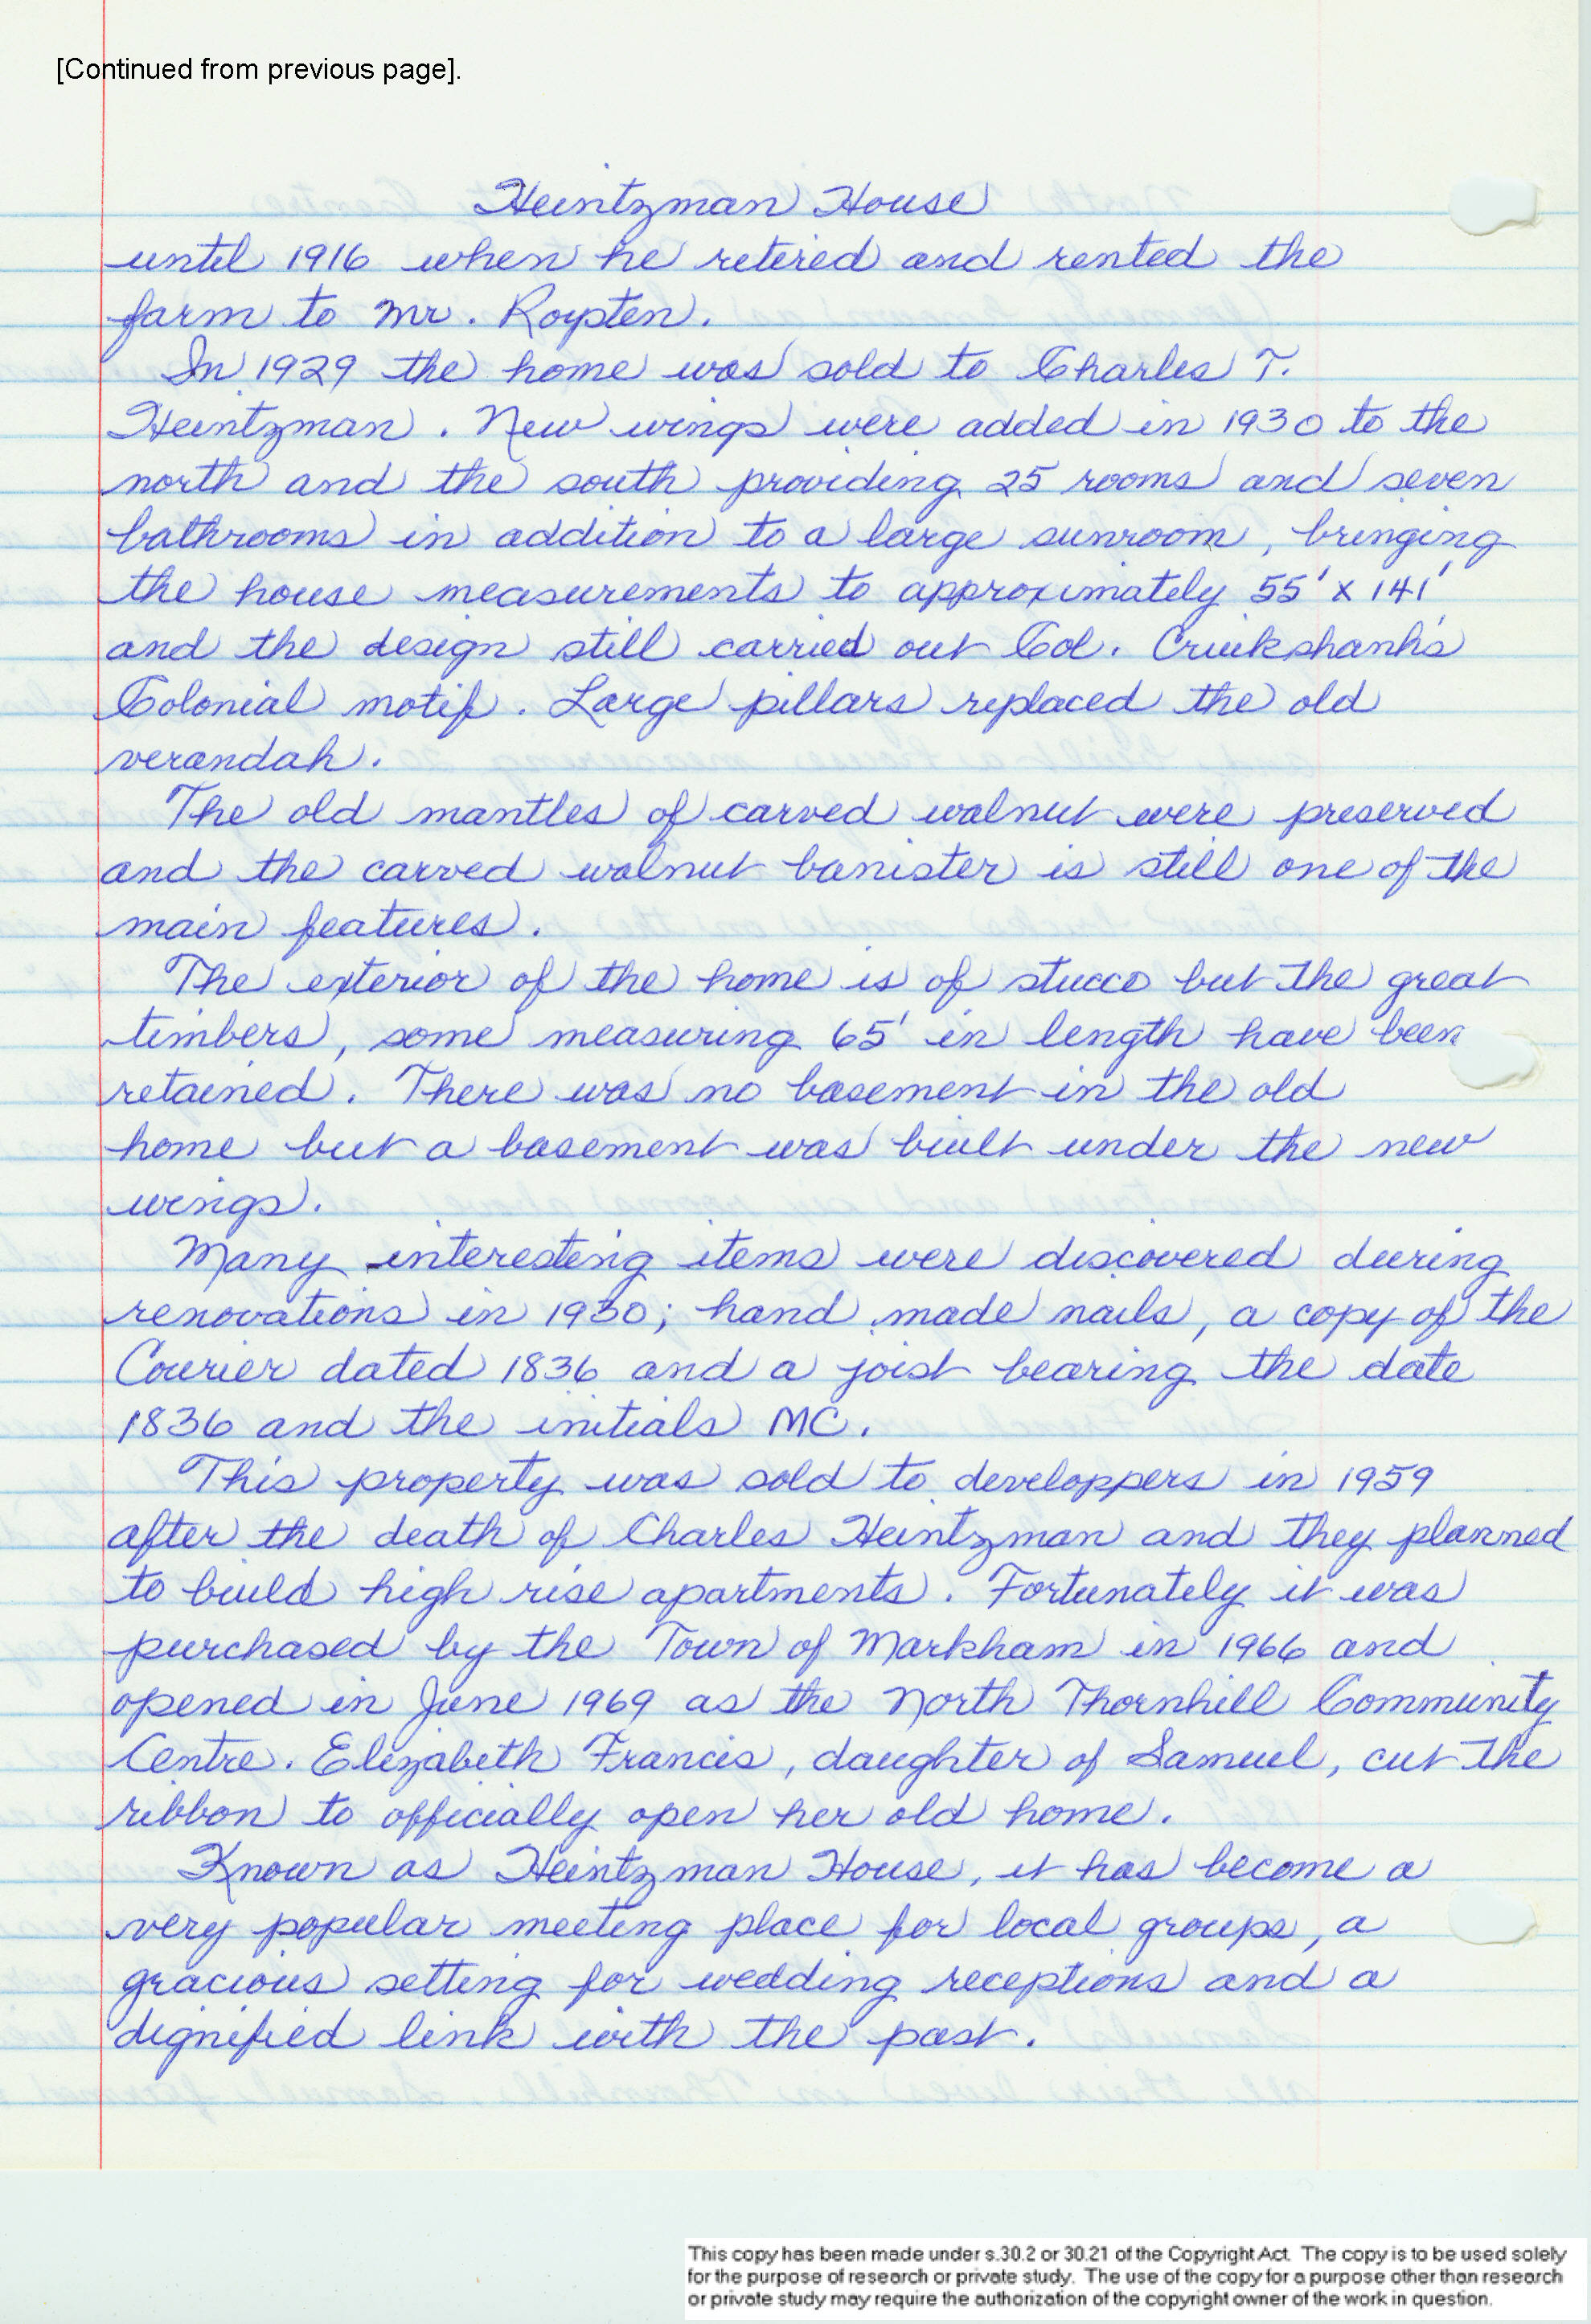 [Continued from previous page].
Heintzman House
until 1916 when he retired and rented the
farm to Mr. Roysten.
In 1929 the home was sold to Charles T.
Heintzman. New wings were added in 1930 to the
north and the south providing 25 rooms and seven
bathrooms in addition to a large sunroom, bringing
the house measurements to approximately 55' x 141'
and the design still carried out Col. Cruikshank's
Colonial motif. Large pillars replaced the old
verandah.
The old mantles of carved walnut were preserved
and the carved walnut banister is still one of the
main features.
The exterior of the home is of stucco but the great
timbers, some measuring 65' in length have been
retained. There was no basement in the old
home but a basement was built under the new
wings.
Many interesting items were discovered during
renovations in 1930; hand made nails, a copy of the
Courier dated 1836 and a joist bearing the date
1836 and the initials MC.
This property was sold to developpers in 1959
after the death of Charles Heintzman and they planned
to build high rise apartments. Fortunately it was
purchased by the Town of Markham in 1966 and
opened in June 1969 as the North Thornhill Community
Centre. Elizabeth Francis, daughter of Samuel, cut the
ribbon to officially open her old home.
Known as Heintzman House, it has become a
very popular meeting place for local groups, a
gracious setting for wedding receptions and a
dignified link with the past.
This copy has been made under s.30.2 or 30.21 of the Copyright Act. The copy is to be used solely
for the purpose of research or private study. The use of the copy for a purpose other than research
or private study may require the authorization of the copyright owner of the work in question.